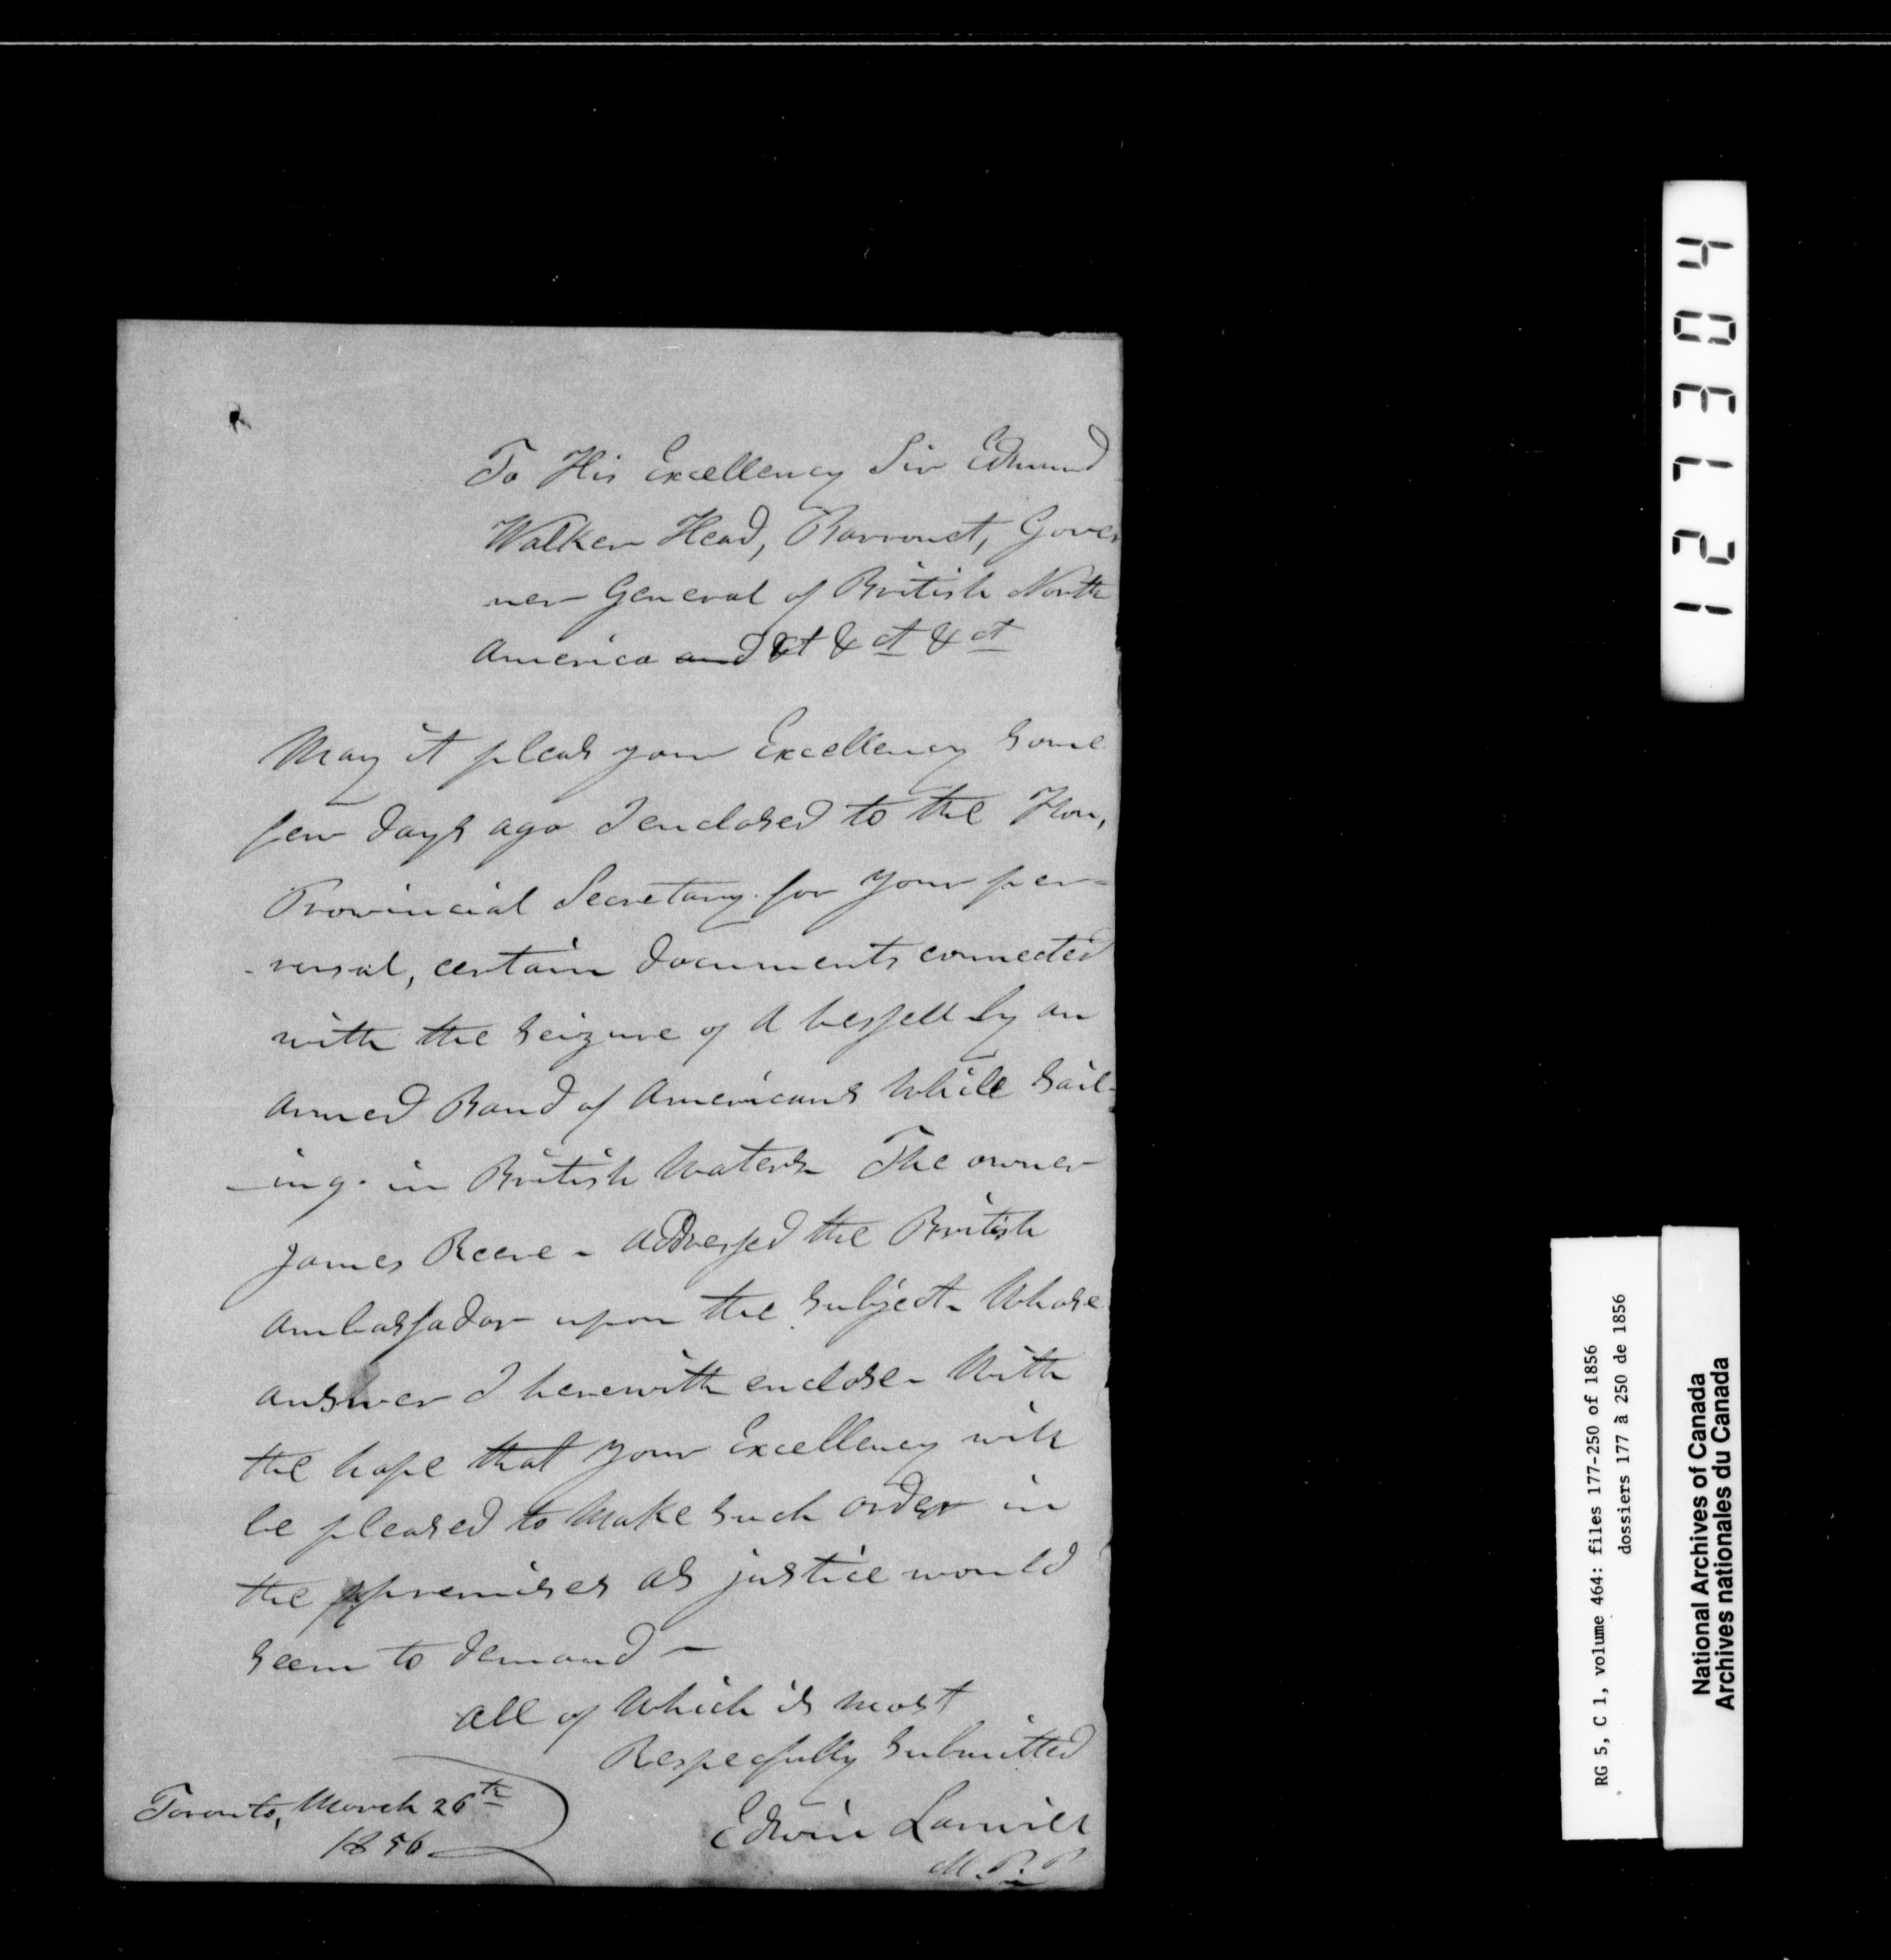 To His Excellency Sir Edmund
Walker Head, Barronet, Gover
ner General of British North
America and &ct &ct &ct
May it pleas your Excellency Some
few days ago I enclosed to the Hon,
Provincial Secretary for your per-
-rersal, certain documents connected
with the Seizure of A vessell by an
Armed Band of Americans While Sail-
-ing in British Waters The owner
James Reeve - addressed the British
Ambassador upon the Subject - Whose
answer I herewith enclose - With
the hope that your Excellency will
be pleased to Make Such order in
the premises as justice would
Seem to demand -
All of Which is most
Respecfully Submitted
Toronto, March 26th
1856
Edwin Larwill
M.P.P
127304
RG 5, C 1, volume 464: files 177-250 of 1856
dossiers 177 à 250 de 1856
National Archives of Canada
Archives nationales du Canada